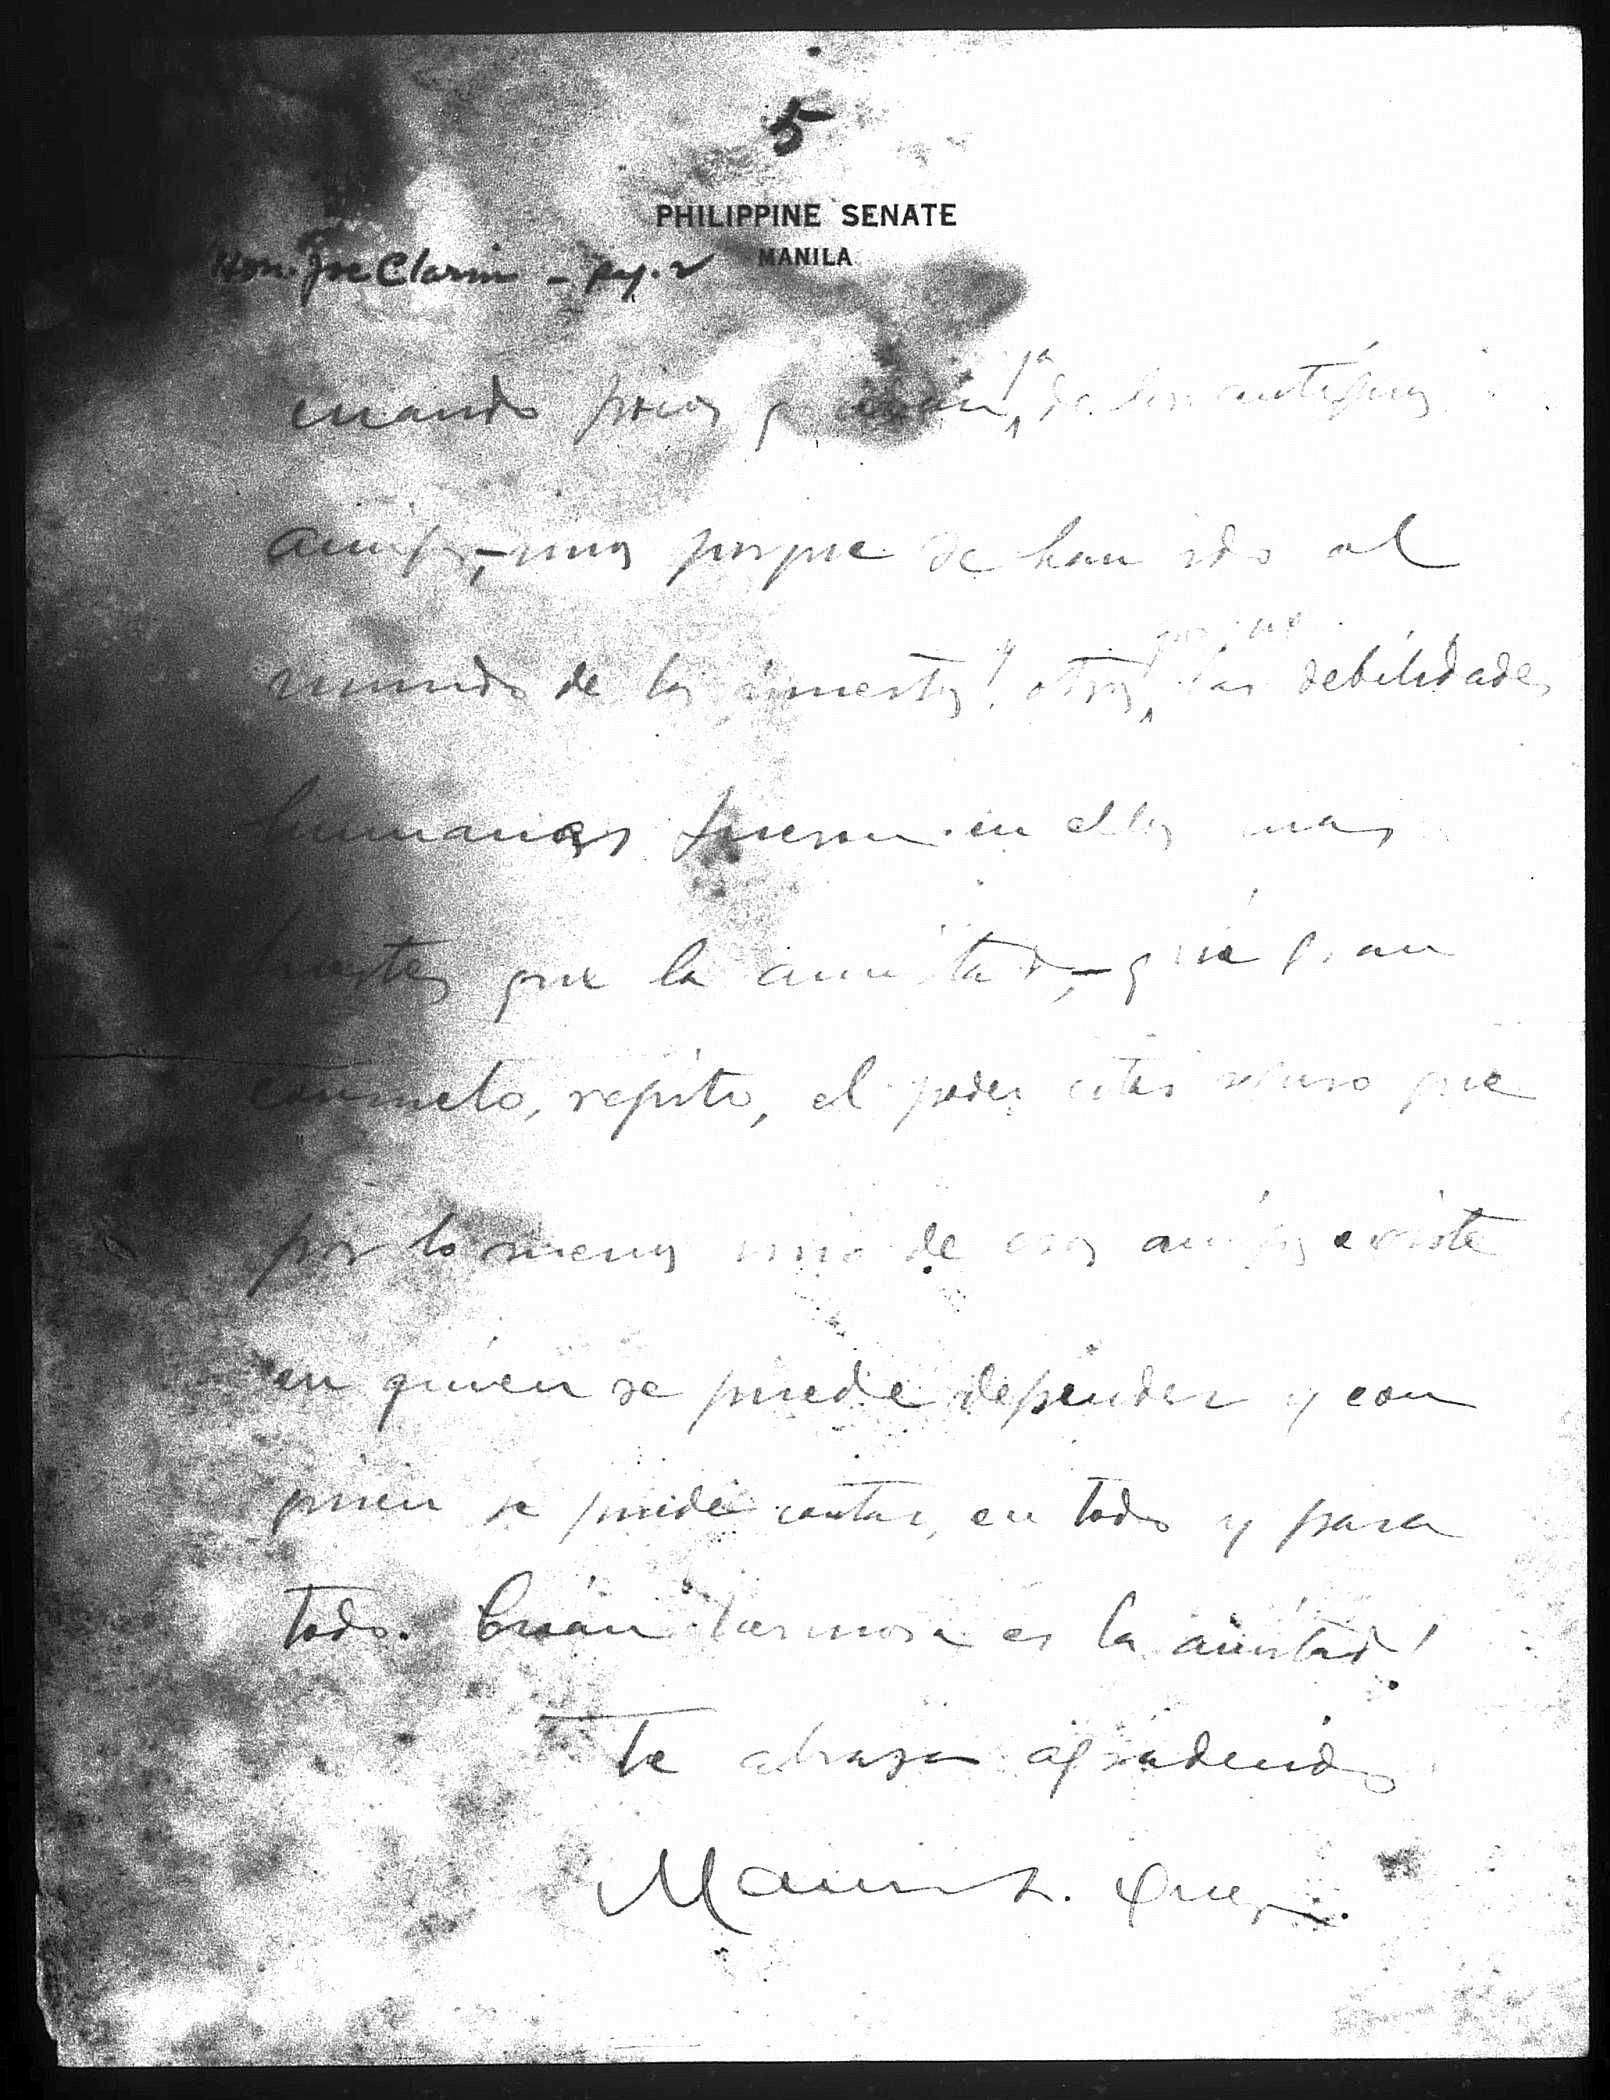 5
PHILIPPINE SENATE
MANILA
Hon. Jose Clarin - pag. 2
cuando pocos quedan ya de los antiguos
amigos,- unos porque se han ido al
mundo de los muertos y otros porque las debilidades
humanas fueron en ellos mas
fuertes que la amistad,- qué gran
consuelo, repito, el poder estar seguro que
por lo menos uno de esos amigos existe
en quien se puede depender y con
quien se puede contar, en todo y para
todo. Cuán hermosa es la amistad!
Te abraza agradecido
Manuel L. Quezon.